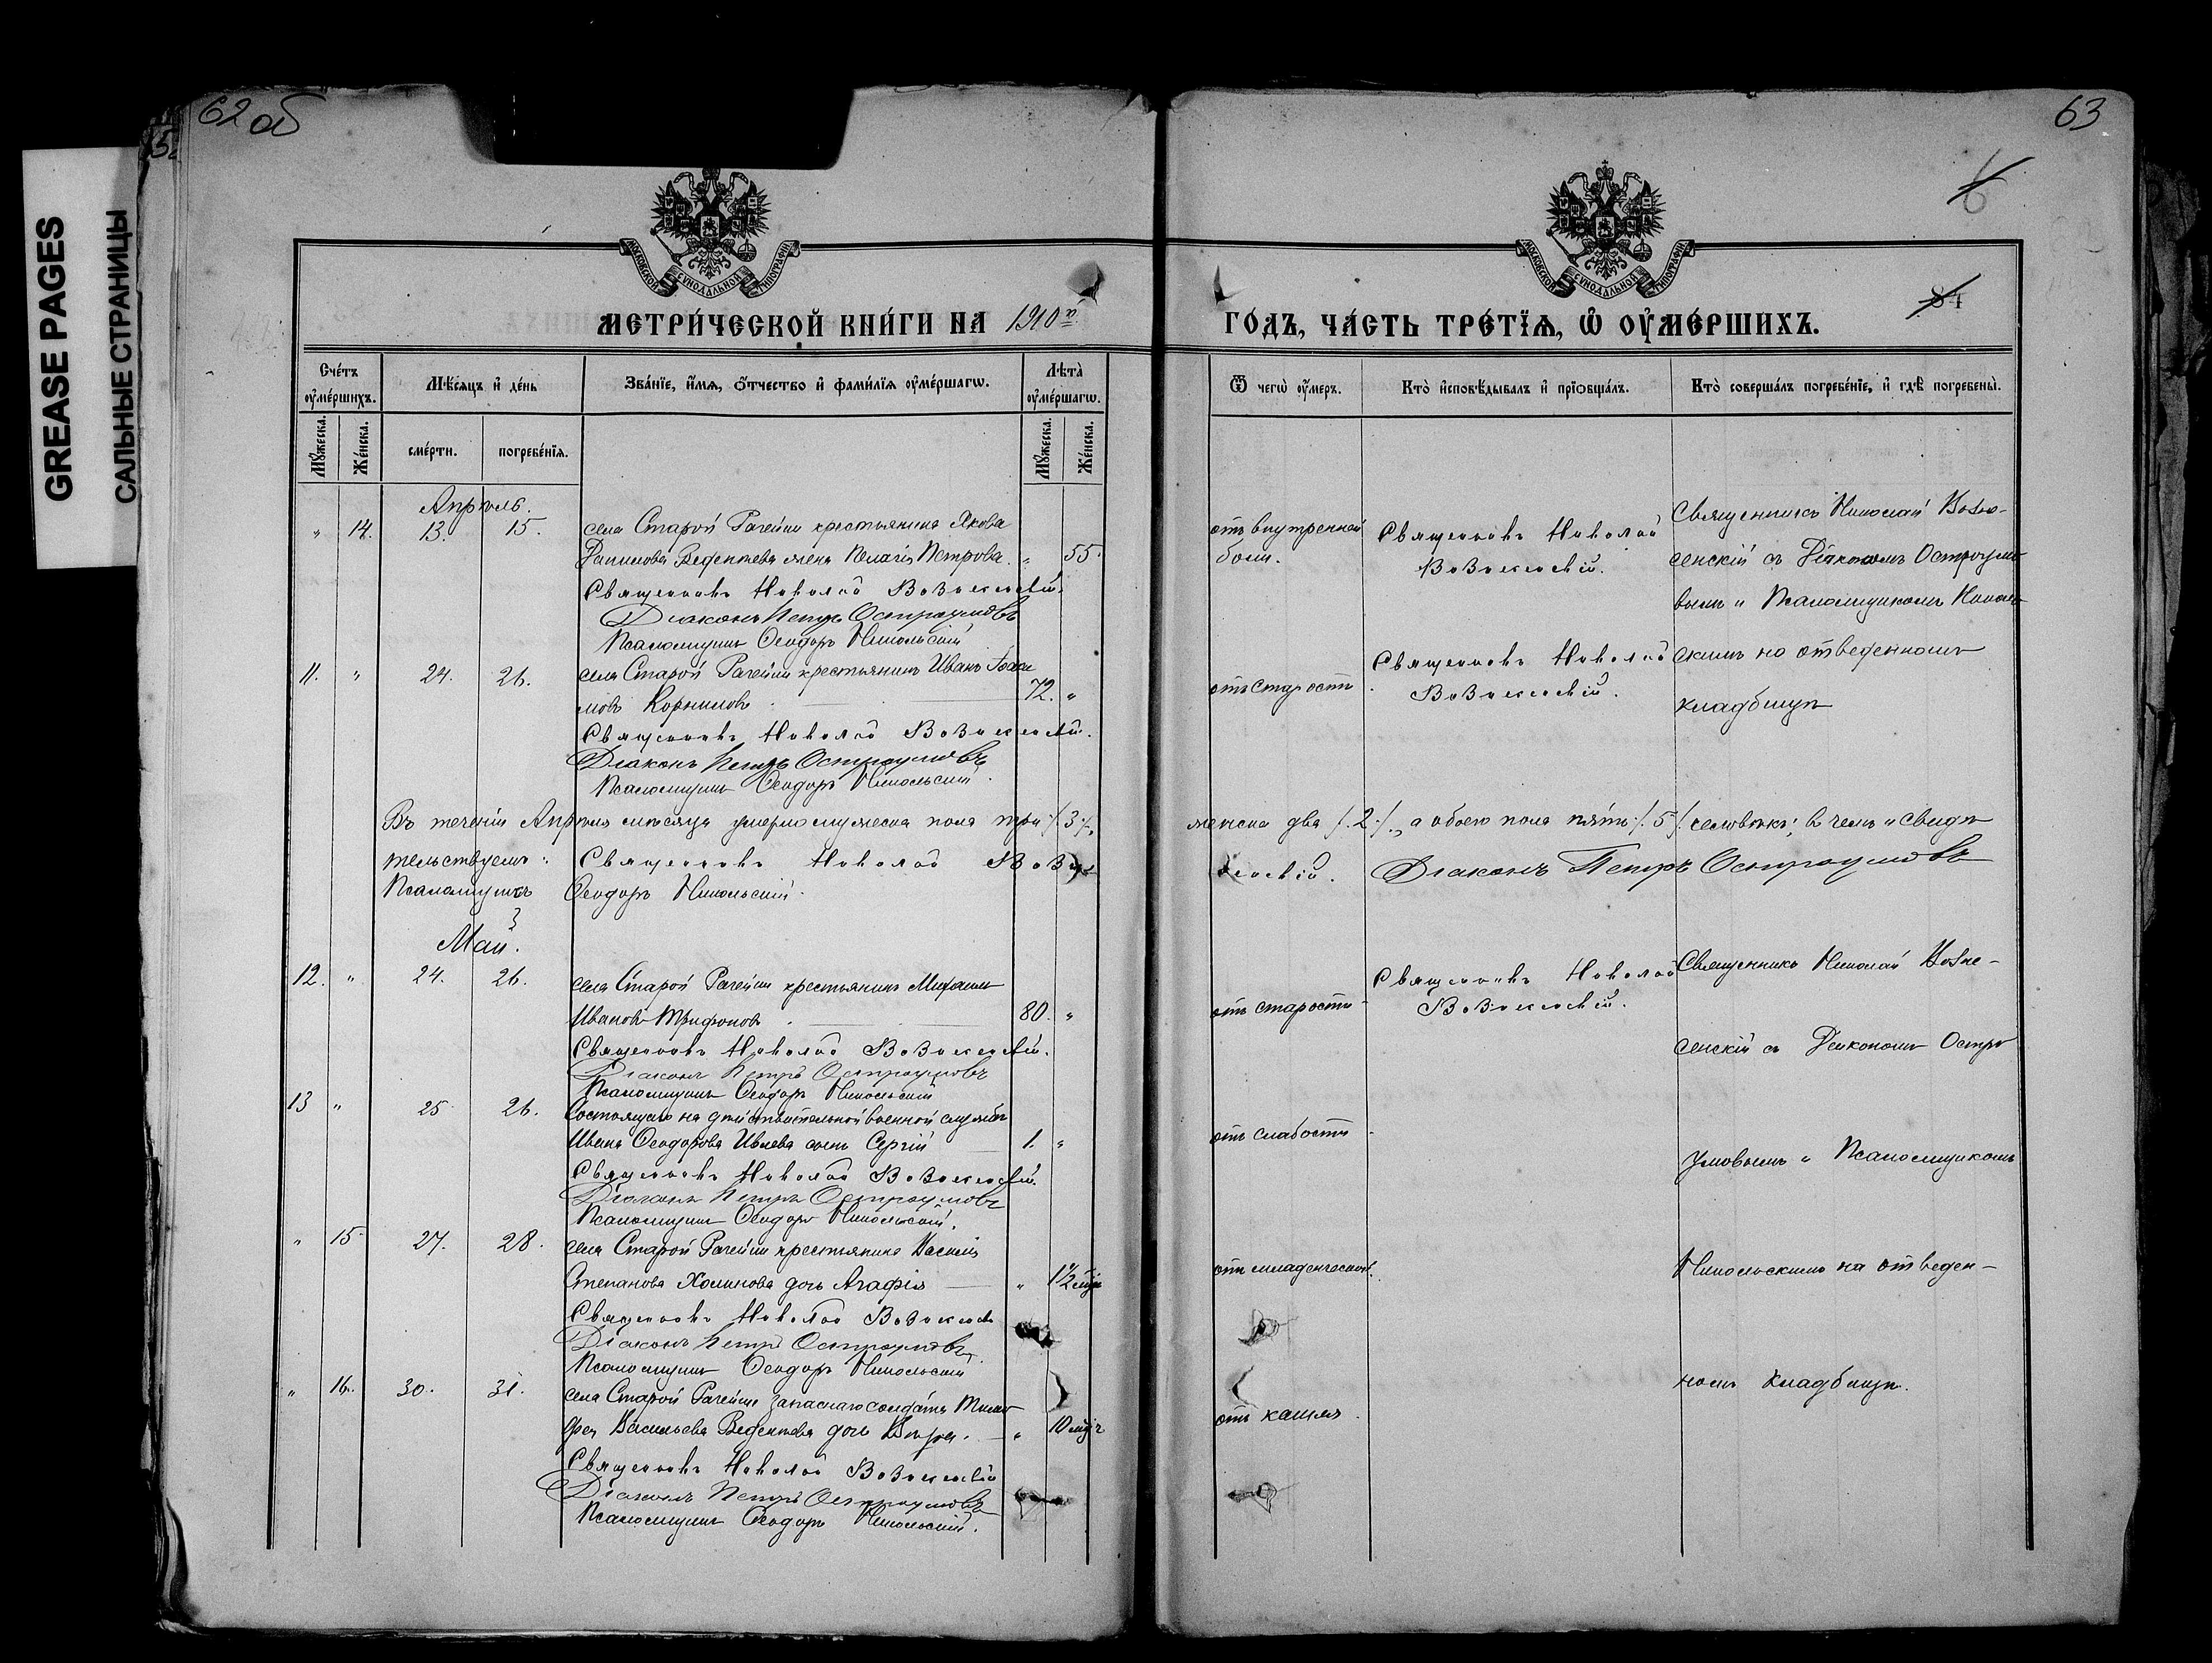 62 об
63
GREASE PAGES
САЛЬНЫЕ СТРАНИЦЫ
6
84
МОСКОВСКОЙ СѴНОДАЛЬНОЙ ТИПОГРАФІИ
МОСКОВСКОЙ СѴНОДАЛЬНОЙ ТИПОГРАФІИ
МЕТРИ́ЧЕСКОЙ КНИ́ГИ НА 1910й
ГО́ДЪ, ЧА́СТЬ ТРЕ́ТЇѦ, Ѡ҆ ОУ҆МЕ́РШИХЪ.
Сче́тъ оу҆ме́ршихъ.
Мѣ́сяцъ и҆ де́нь
Зва́нїе, и҆́мѧ, ѻ҆́тчество и҆ фами́лїѧ оу҆ме́ршагѡ.
Лѣта̀ оу҆ме́ршагѡ.
Ѿ чегѡ̀ оу҆́меръ.
Кто̀ и҆сповѣ́дывалъ и҆ прїѡбща́лъ.
Кто̀ соверша́лъ погребе́нїе, и҆ гдѣ̀ погребены̀.
Мꙋ́жеска.
Же́нска.
сме́рти.
погребе́нїѧ.
Мꙋ́жеска.
Же́нска.
Апрѣль.
" 14. 13. 15. села Старой Рачейки крестьянина Якова
Данилова Веденѣева жена Пелагія Петрова. " 55.
Священникъ Николай Вознесенскій.
Діаконъ Петръ Остроумовъ
Псаломщикъ Ѳеодоръ Никольскій
отъ внутренней
боли.
Священникъ Николай
Вознесенскій.
Священникъ Николай Возне-
сенскій съ Діакономъ Остроумо
вымъ и Псаломщикомъ Николь
скимъ на отведенномъ
кладбищѣ
11. " 24. 26. села Старой Рачейки крестьянинъ Иванъ
мовъ Корниловъ 72. "
Священникъ Николай Вознесенскій.
Діаконъ Петръ Остроумовъ
Псаломщикъ Ѳеодоръ Никольскій.
отъ старости
Священникъ Николай
Вознесенскій.
Въ теченіи Апрѣля мѣсяца умерло мужеска пола три /. 3 ./,
женска два /. 2 ./, а обоего пола пять /. 5 ./ человѣкъ; в чемъ и свидѣ
тельствуемъ: Священникъ Николай Возне
сенскій. Діаконъ Петръ Остроумовъ
Псаломщикъ Ѳеодоръ Никольскій.
Май.
12. " 24. 26. села Старой Рачейки крестьянинъ
Ивановъ Трифоновъ 80. "
Священникъ Николай Вознесенскій.
Діаконъ Петръ Остроумовъ
Псаломщикъ Ѳеодоръ Никольскій
отъ старости
Священникъ Николай
Вознесенскій.
Священникъ Николай Возне-
сенскій съ Діакономъ Остро
умовымъ и Псаломщикомъ
Никольскимъ на отведен-
номъ кладбищѣ.
13 " 25 26. Состоящаго на дѣйствительной военной службѣ
Ивана Ѳеодорова Ивлева сынъ Сергій 1. "
Священникъ Николай Вознесенскій.
Діаконъ Петръ Остроумовъ
Псаломщикъ Ѳеодоръ Никольскій.
отъ слабости
" 15. 27. 28. села Старой Рачейки крестьянина Василія
Степанова Холинова дочь Агафія " 1½ мѣс
Священникъ Николай Вознесенск
Діаконъ Петръ Остроумовъ.
Псаломщикъ Ѳеодоръ Никольскій
отъ младенческой.
" 16. 30. 31. села Старой Рачейки запаснаго солдата Тимо
фея Васильева Веденѣева дочь Вѣра. " 10 мѣс
Священникъ Николай Вознесенскій
Діаконъ Петръ Остроумовъ
Псаломщикъ Ѳеодоръ Никольскій.
отъ кашля.